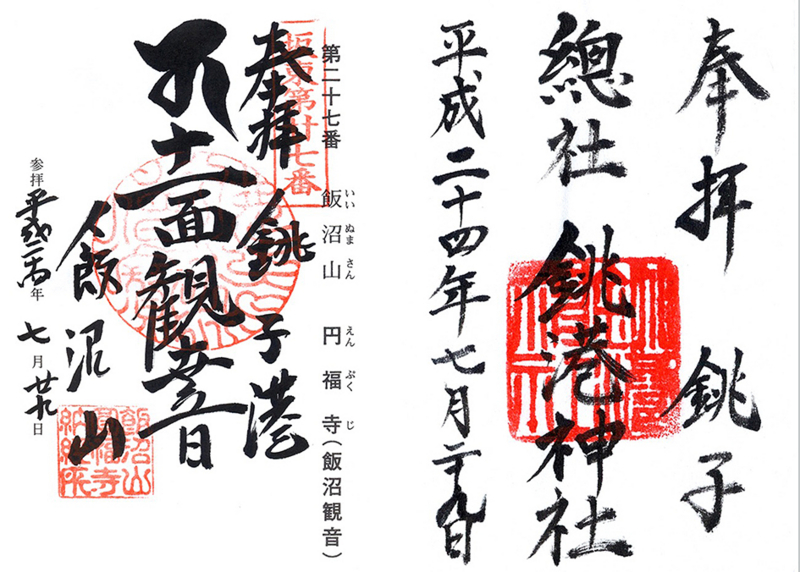 奉拝 銚子
總社 銚港神社
平成二十四年七月二十九日
第二十七番 飯沼山 円福寺(飯沼観音)
いいぬまさん えんぷくじ
坂東第廿七番
奉拝 銚子港
十一面観世音
飯沼山
参拝 平成二十四年 七月 廿九日
飯沼山
円福寺
納経所